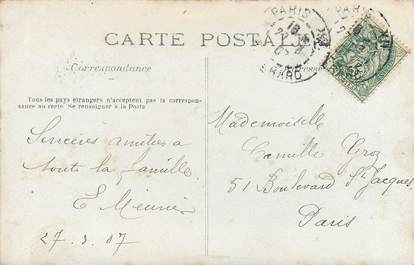 PARIS
CARTE POSTALE
Correspondance
Tous les pays étrangers n'acceptent pas la correspon-
dance au recto. Se renseigner à la Poste
Sincères amitiés à
toute la famille
E Meunier
27_3_07
Mademoiselle
Camille Groz
51 Boulevard St Jacques
Paris